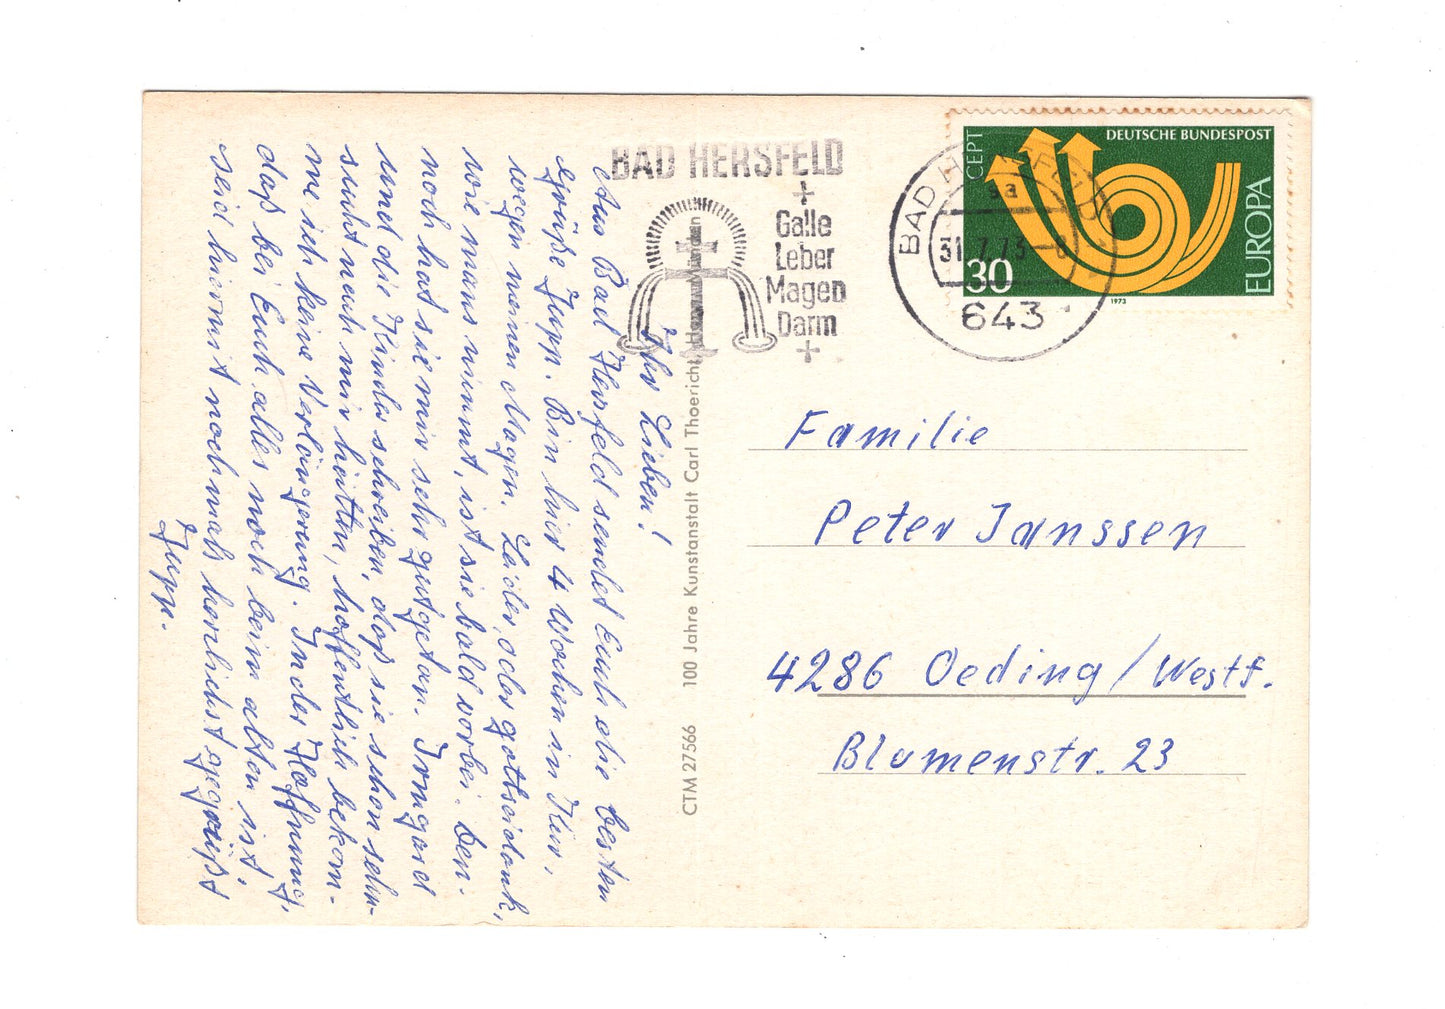 Ihr Lieben!
Aus Bad Hersfeld sendet Euch die besten
Grüße Jupp. Bin hier 4 Wochen in Kur,
wegen meinen Magen. Leider, oder gottseidank,
wie mans nimmt, ist sie bald vorbei. Den-
noch hat sie mir sehr gutgetan. Irmgard
und die Kinder schreiben, daß sie schon sehn-
sucht nach mir hätten, hoffentlich bekom-
me ich keine Verlängerung. In der Hoffnung,
daß bei Euch alles noch beim alten ist,
seid hiermit nochmals herzlichst gegrüßt
Jupp.
CTM 27566 100 Jahre Kunstanstalt Carl Thoericht, Hann. Münden
BAD HERSFELD
Galle
Leber
Magen
Darm
BAD HERSFELD
sa
31.7.73-8
643
CEPT
DEUTSCHE BUNDESPOST
EUROPA
30
1973
Familie
Peter Janssen
4286 Oeding/Westf.
Blumenstr. 23